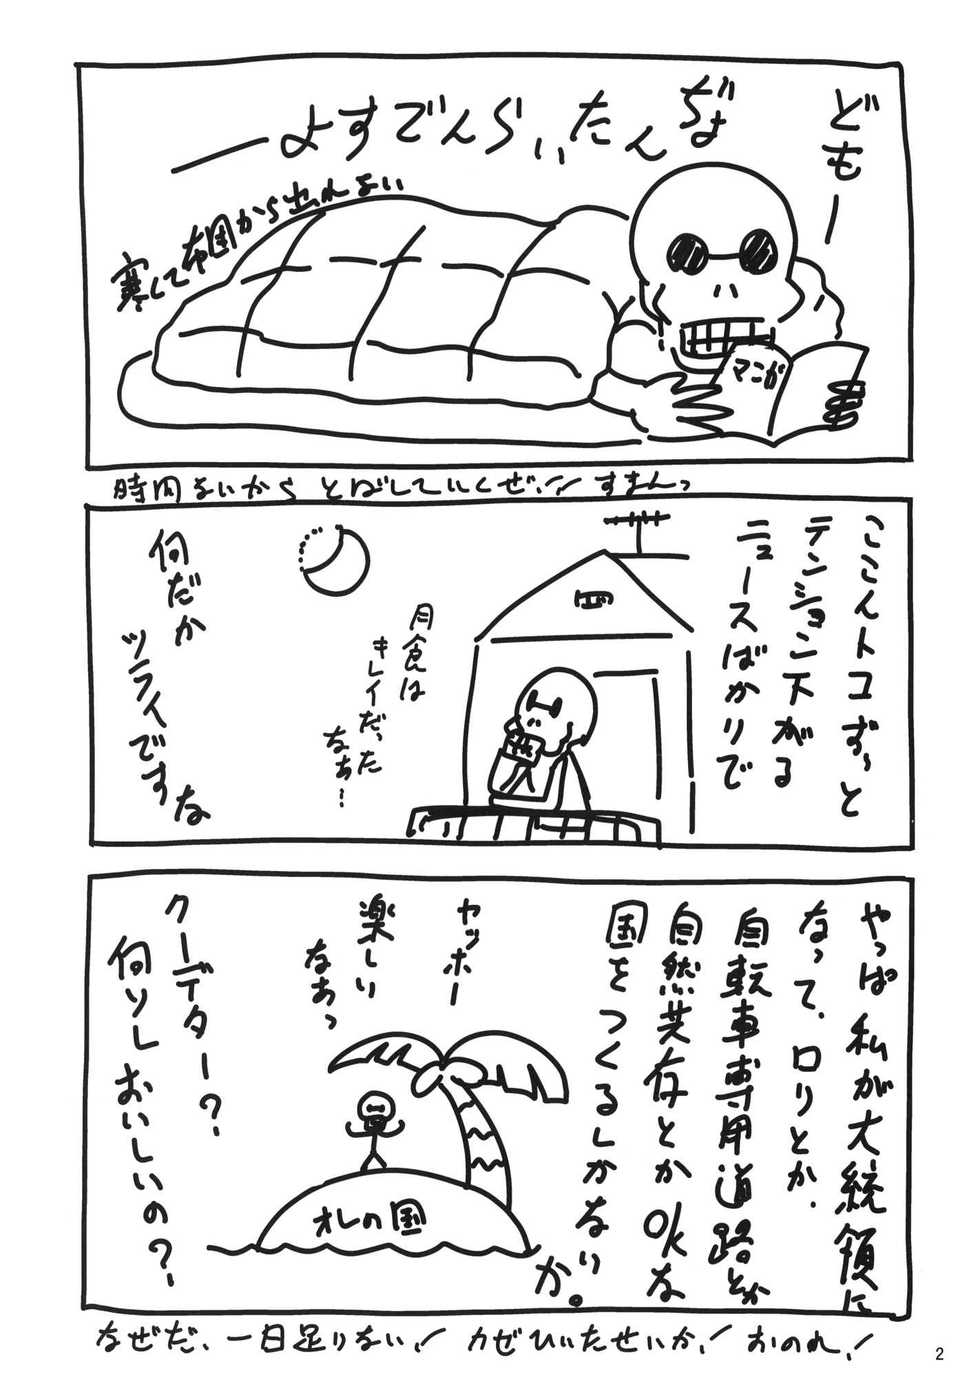 どもー
ぢょんたいらんですよー
寒くて布団から出れない
マンガ
時間ないからとばしていくぜ!!すまんっ
ここんトコずーっと
テンション下がる
ニュースばかりで
月食は
キレイだった
なぁ…
何だか
ツライですな
やっぱ私が大統領に
なって、ロリとか、
自転車専用道路とか
自然共存とかokな
国をつくるしかない
か。
ヤッホー
楽しい
なあっ
オレの国
クーデター?
何ソレおいしいの?
なぜだ、一日足りない!カゼひいたせいか!おのれ!
2